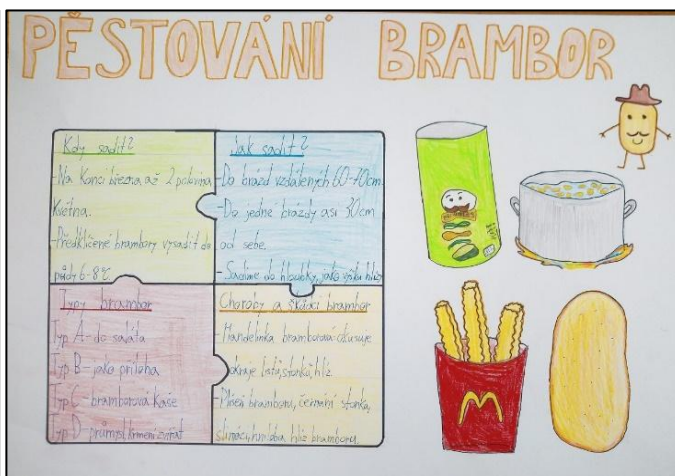 PĚSTOVÁNÍ BRAMBOR
Kdy sadit?
-Na konci března až 2 polovina
Května.
-Předklíčené brambory vysadit do
půdy 6-8°C
Jak sadit?
-Do brázd vzdálených 60-70cm
-Do jedné brázdy asi 30cm
od sebe.
-Sadíme do hloubky, jako výška hlízy
Typy brambor
Typ A- do salátu
Typ B- jako příloha
Typ C- bramborová kaše
Typ D- průmysl, krmení zvířat
Choroby a škůdci brambor
-Mandelinka bramborová-okusuje
okraje listů, stonků, hlíz
-Plíseň bramboru, černání stonku,
slimáci, hniloba hlíz bramboru.
M